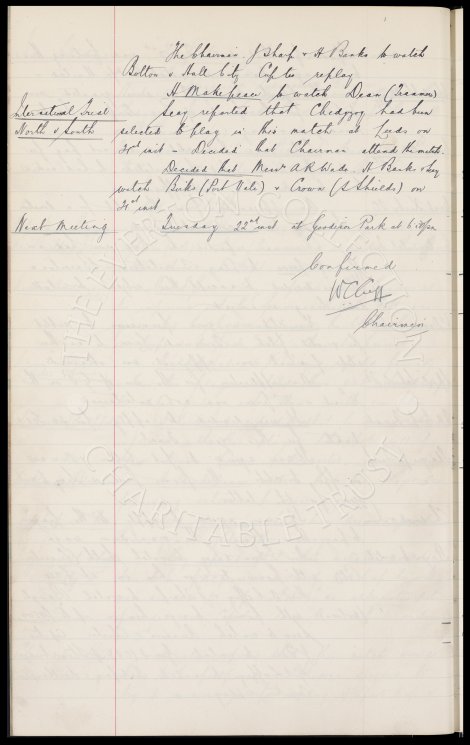 The Chairman J Sharp & H Banks to watch
Bolton v Hull City Cup tie replay
H Makepeace to watch Dean (Tranmere)
International Trial
North v South
Secy reported that Chedgzoy had been
selected to play in this match at Leeds on
21st inst – Decided that Chairman attend the match.
Decided that Messrs A R Wade, H Banks & Secy
watch Birks (Port Vale) & Crown (S Shields) on
21st inst.
Next Meeting
Tuesday 22nd inst at Goodison Park at 6.30pm
Confirmed
WC Cuff
Chairman
THE EVERTON COLLECTION
CHARITABLE TRUST